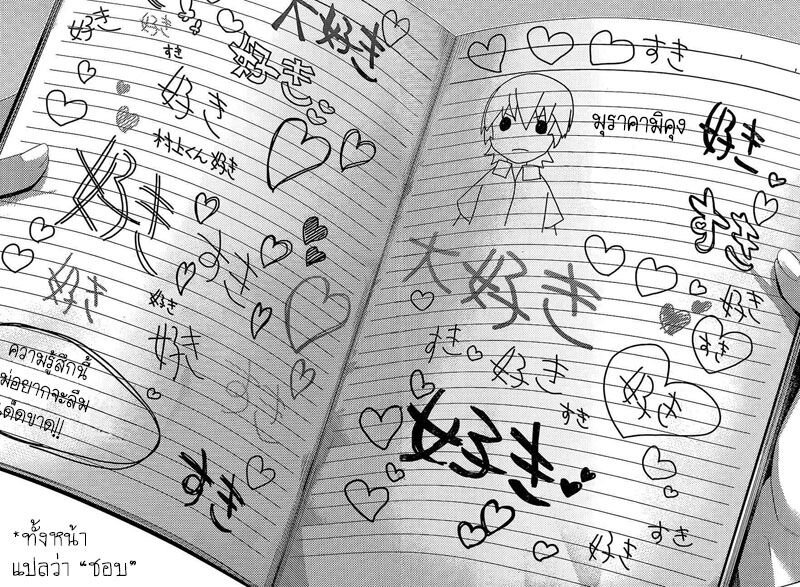 大好き
好き
好き
すき
好き
好き
村上くん 好き
好き
すき
好き
好き
好き
すき
すき
ความรู้สึกนี้
ไม่อยากจะลืม
เด็ดขาด!!
*ทั้งหน้า
แปลว่า “ชอบ”
すき
มุราคามิคุง
好き
すき
大好き
好き
すき
すき
好き
好き
すき
好き
すき
好き